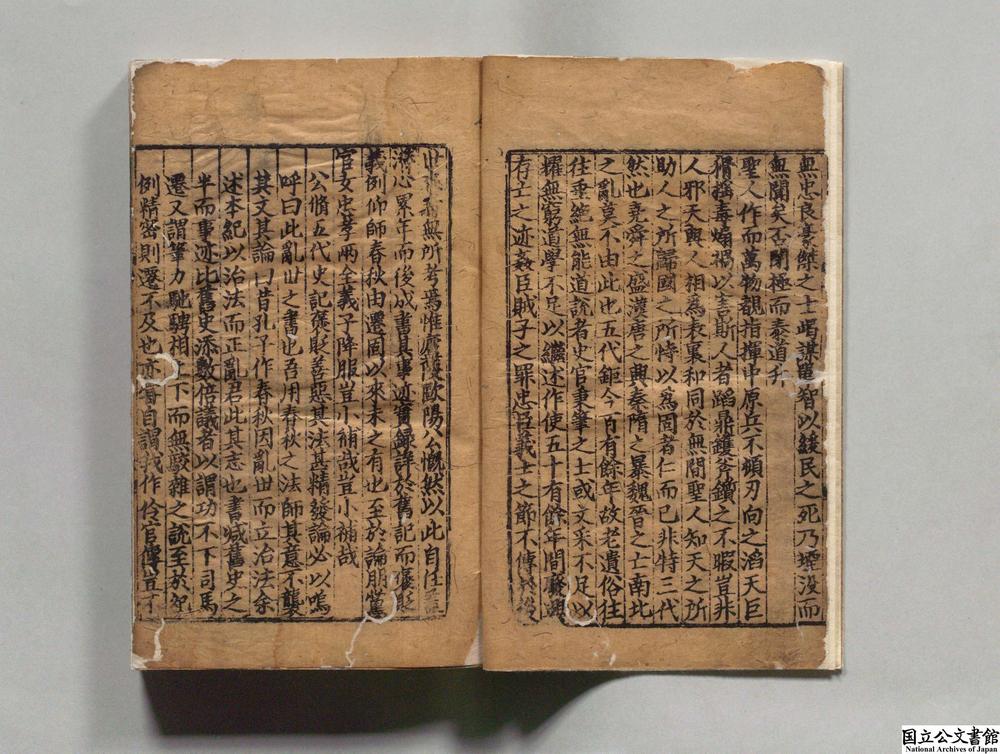 無忠良豪傑之士竭謀單智以緩民之死乃堙没而
無聞矣否閉極而泰道升
聖人作而萬物覩指揮中原兵不頓刃向之滔天巨
猾搖毒煽禍以害斯人者蹈鼎鑊斧鑕之不暇豈非
人邪天與人相為表裏和同於無間聖人知天之所
助人之所歸國之所恃以為固者仁而已非特三代
然也堯舜之盛漢唐之興秦隋之暴魏晉之亡南北
之亂莫不由此也五代鉅今百有餘年故老遺俗往
往垂絶無能道說者史官秉筆之士或文采不足以
耀無窮道學不足以繼述作使五十有餘年間廢興
存亡之迹姦臣賊子之罪忠臣義士之節不傳於後
世 無所考焉惟廬陵歐陽公慨然以此自任
潛心累年而後成書其事迹實録詳於舊記而褒貶
義例仰師春秋由遷固以來未之有也至於論朋黨
宦女忠孝兩全義子降服豈小補哉豈小補哉
公脩五代史記褒貶善惡其法甚精發論必以嗚
呼曰此亂世之書也吾用春秋之法師其意不襲
其文其論曰昔孔子作春秋因亂世而立治法余
述本紀以治法而正亂君此其志也書減舊史之
半而事迹比舊史添數倍議者以謂功不下司馬
遷又謂筆力馳騁相上下而無駁雜之說至於紀
例精密則遷不及也亦嘗自謂我作伶官傳豈下
国立公文書館
National Archives of Japan